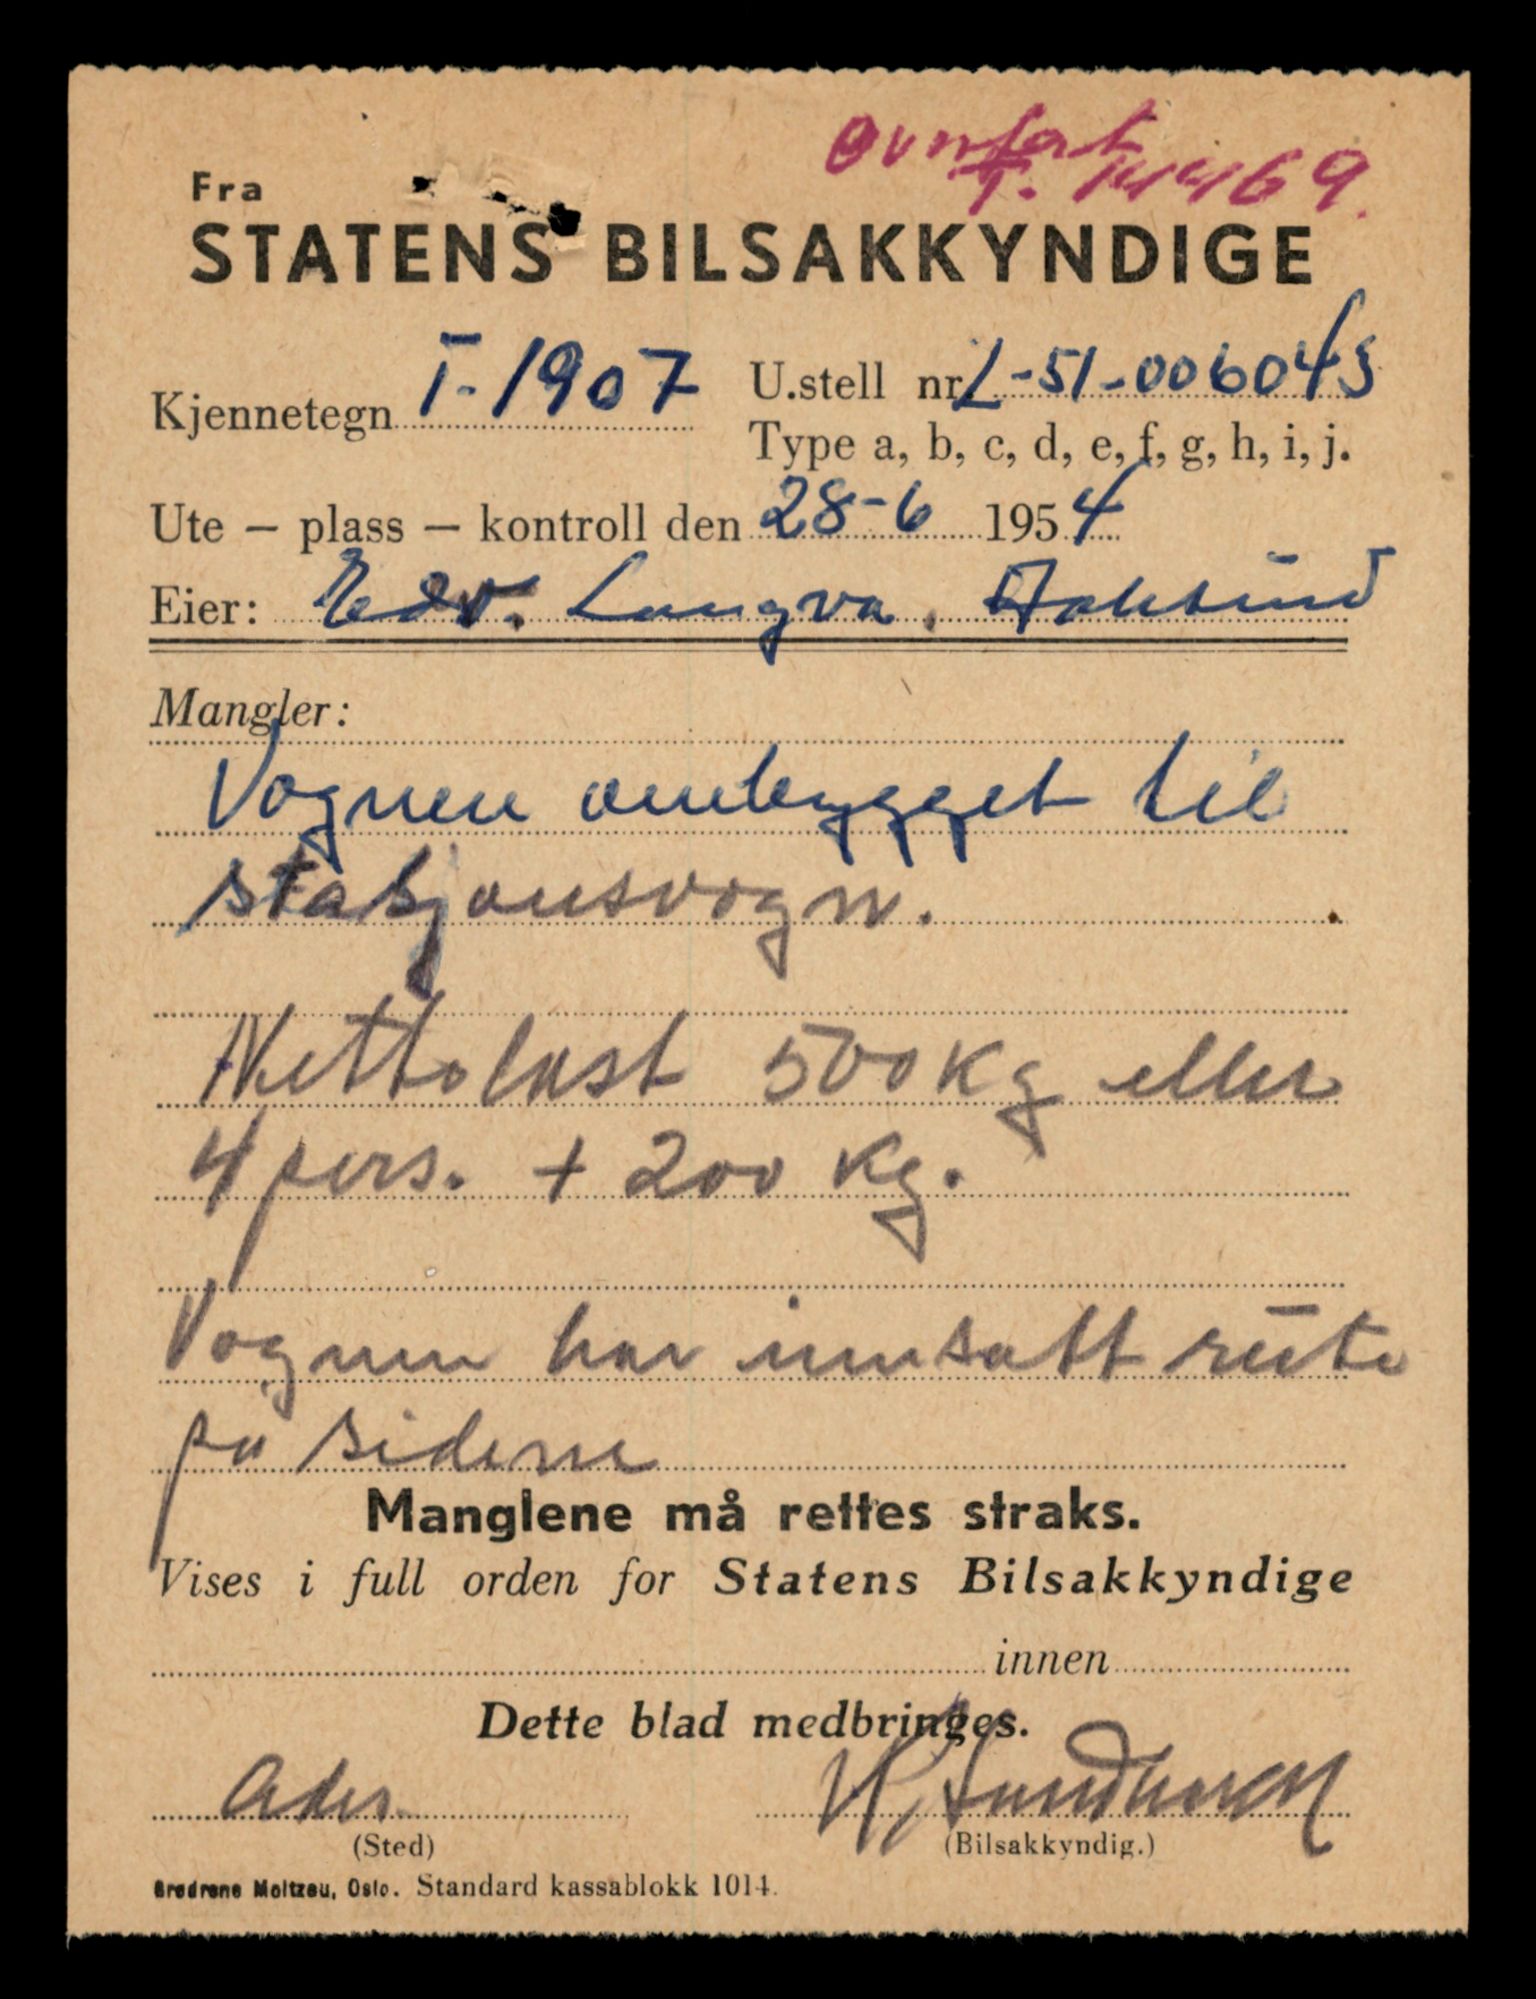 Overført
T. 14469.
Fra
STATENS BILSAKKYNDIGE
Kjennetegn T-1907
U.stell nr. L-51-006045
Type a, b, c, d, e, f, g, h, i, j.
Ute – plass – kontroll den 28-6 1954
Eier: Edv. Langva,
Mangler:
Vognen ombygget til
stasjonsvogn.
Nettolast 500 kg eller
4 pers. + 200 kg.
Vognen har innsatt rute
på sidene
Manglene må rettes straks.
Vises i full orden for Statens Bilsakkyndige
innen
Dette blad medbringes.
(Sted)
(Bilsakkyndig.)
Brødrene Moltzau, Oslo. Standard kassablokk 1014.